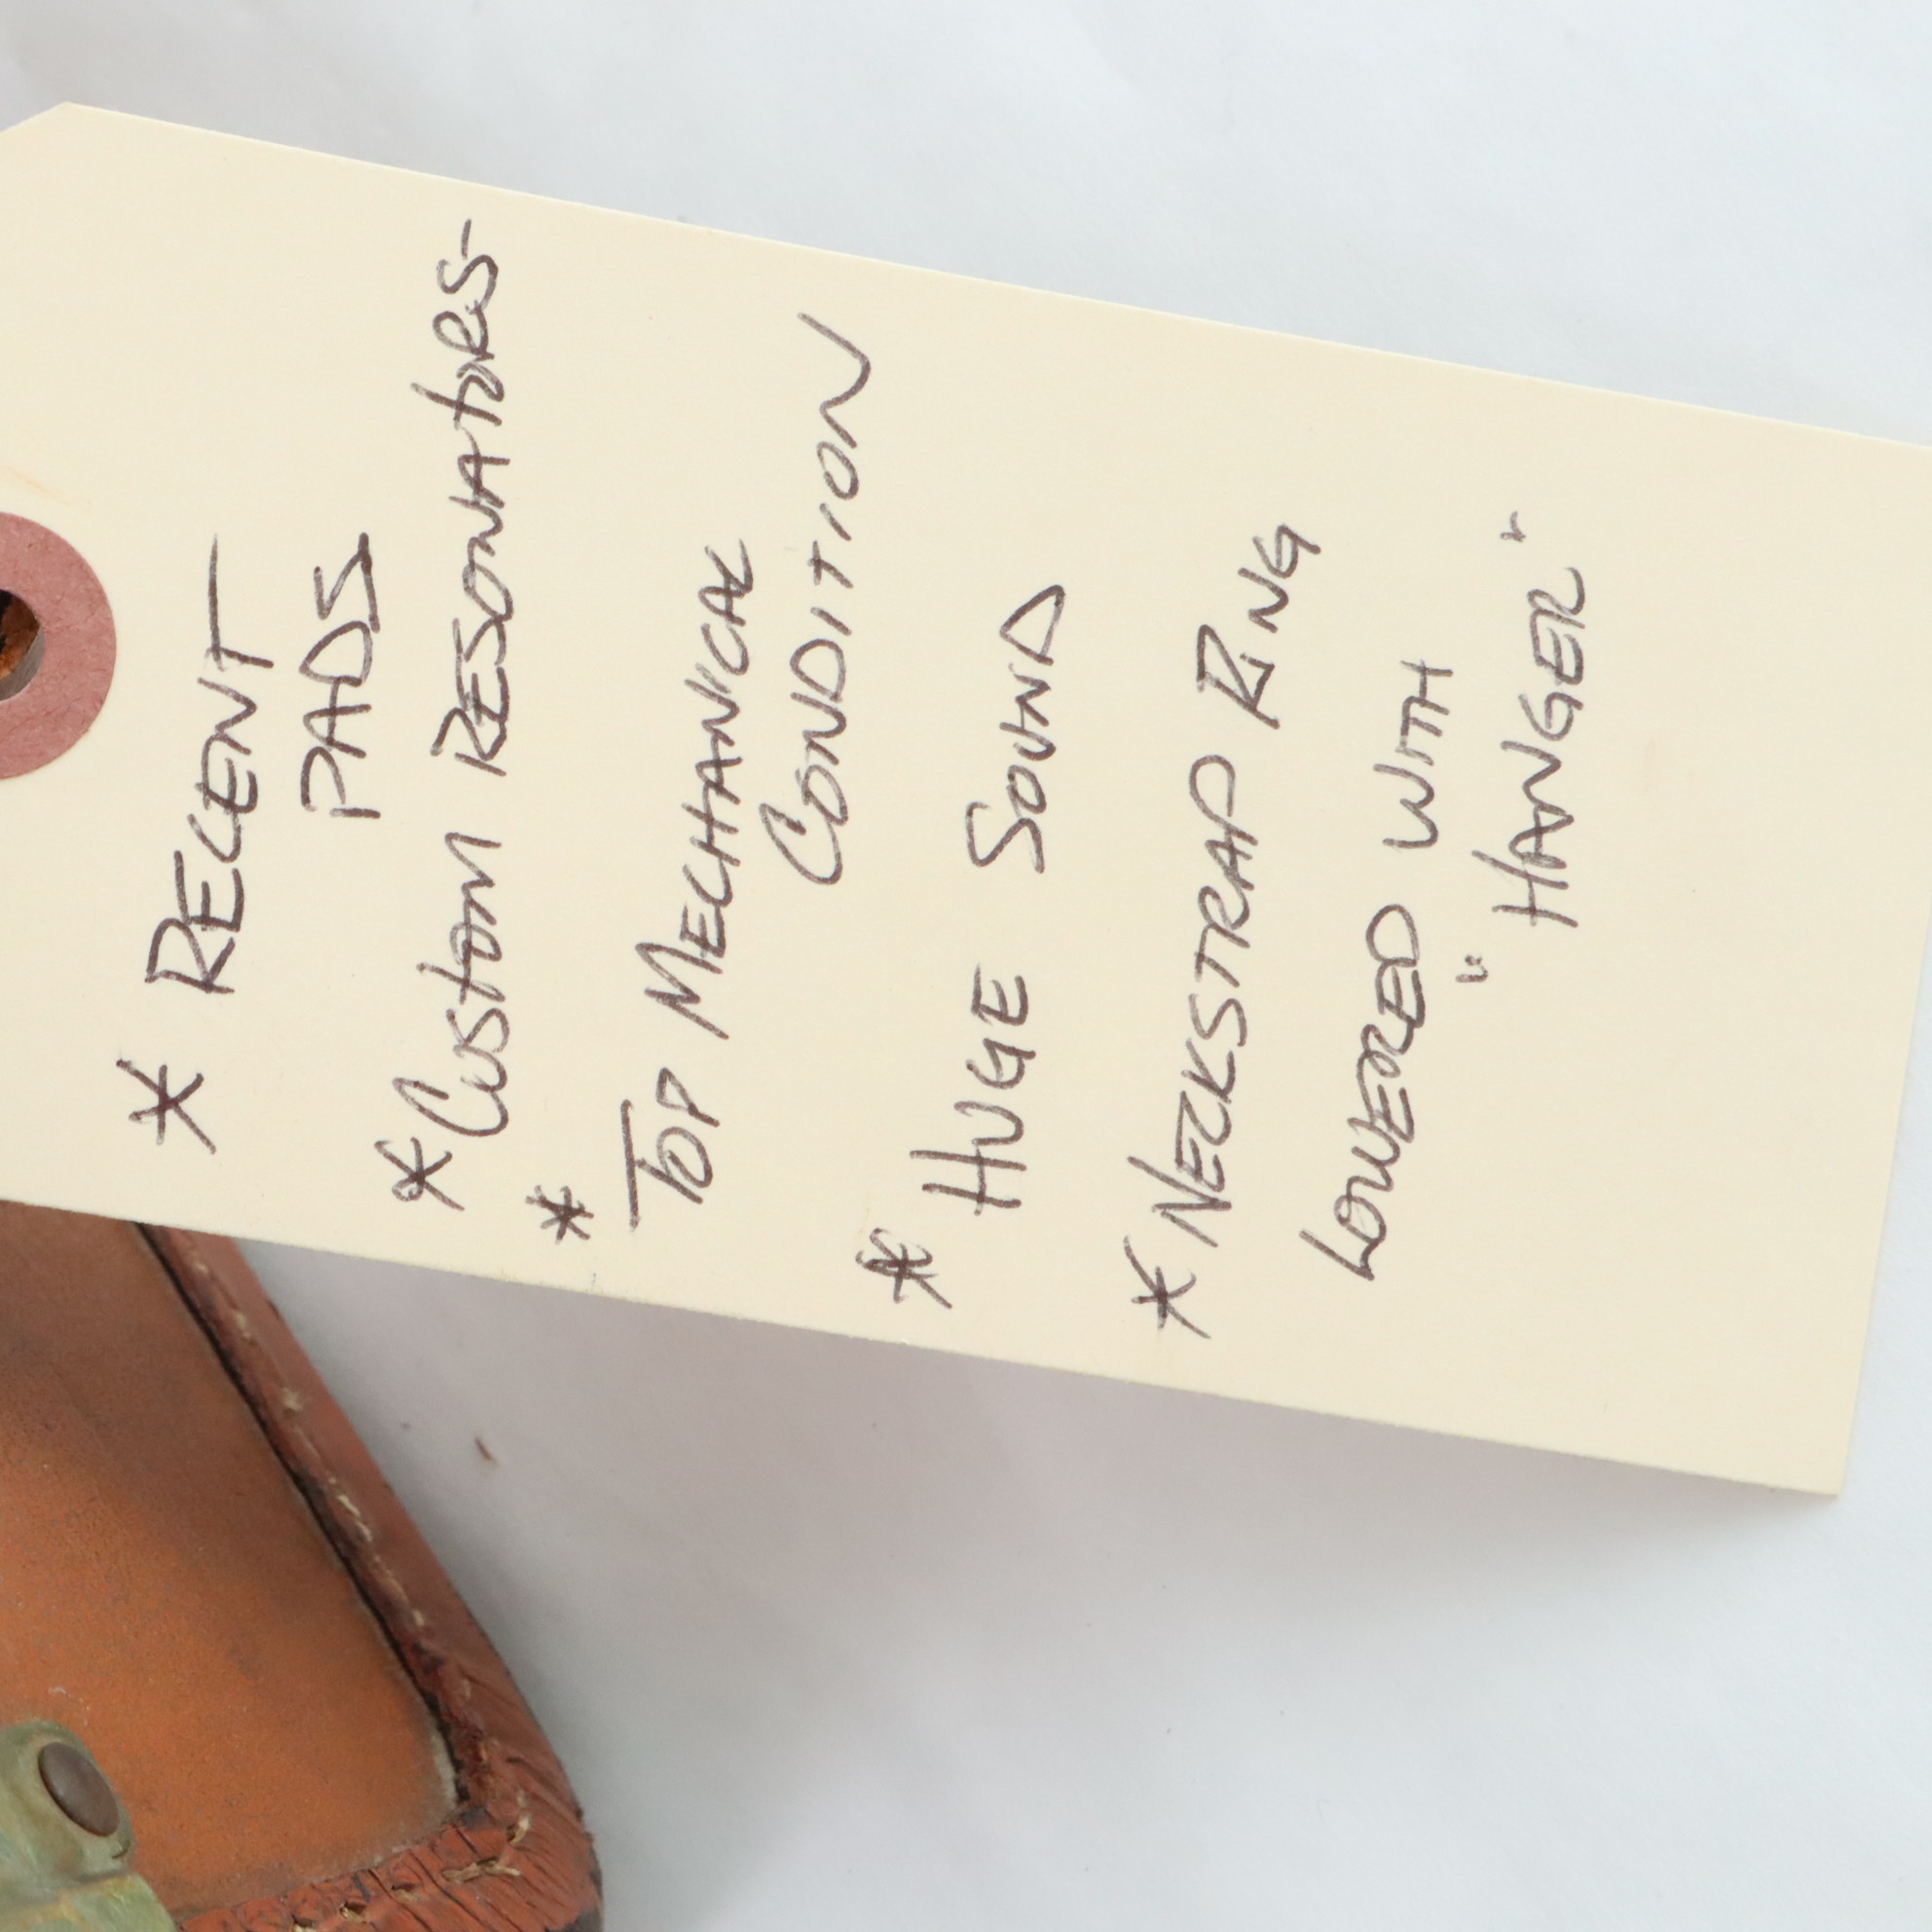 * RECENT
PADS
* CUSTOM RESONATORS
*
TOP MECHANICAL
CONDITION
* HUGE SOUND
* NECKSTRAP RING
LOWERED WITH
"HANGER"